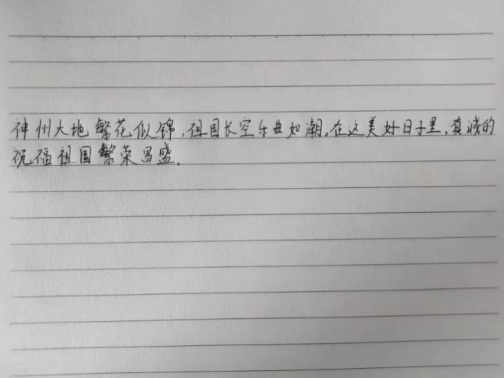 神州大地繁花似锦,祖国长空乐曲如潮。在这美好日子里,真诚的
祝福祖国繁荣昌盛.